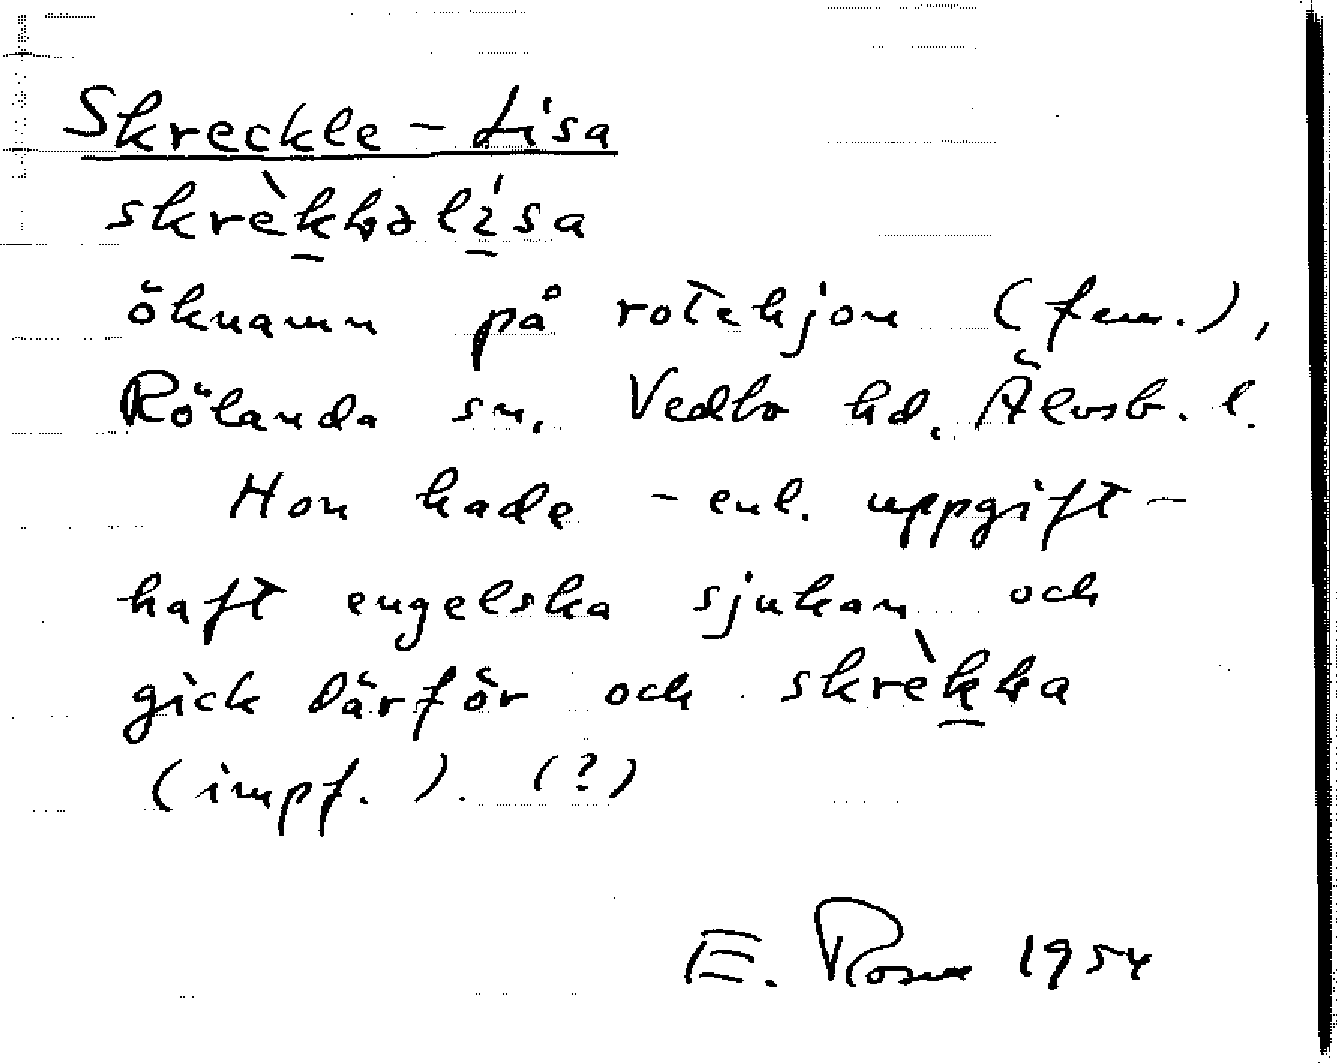 Skreckle-Lisa
skrèkləlísa
öknamn på rotehjon (fem.),
Rölanda sn. Vedbo hd. Älvsb. l.
Hon hade - enl. uppgift -
haft engelska sjukan och
gick därför och skrèkla
(impf.). (?)
E. 1954